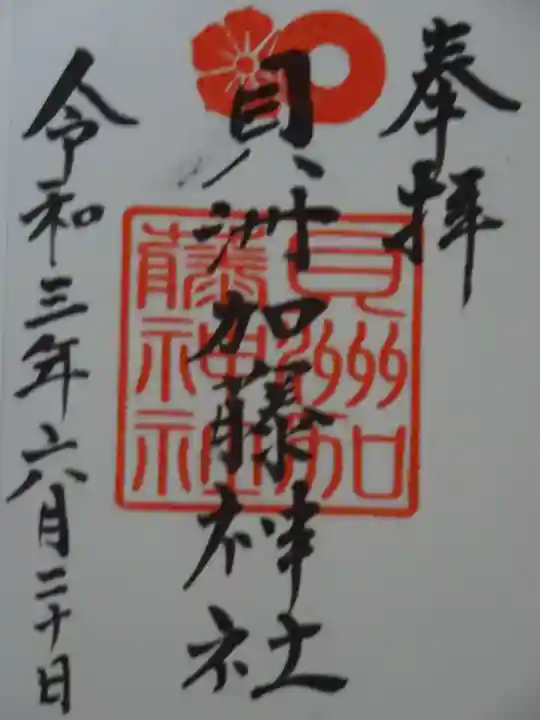 奉拝
貝洲加藤神社
貝洲加藤神社
令和三年六月二十日